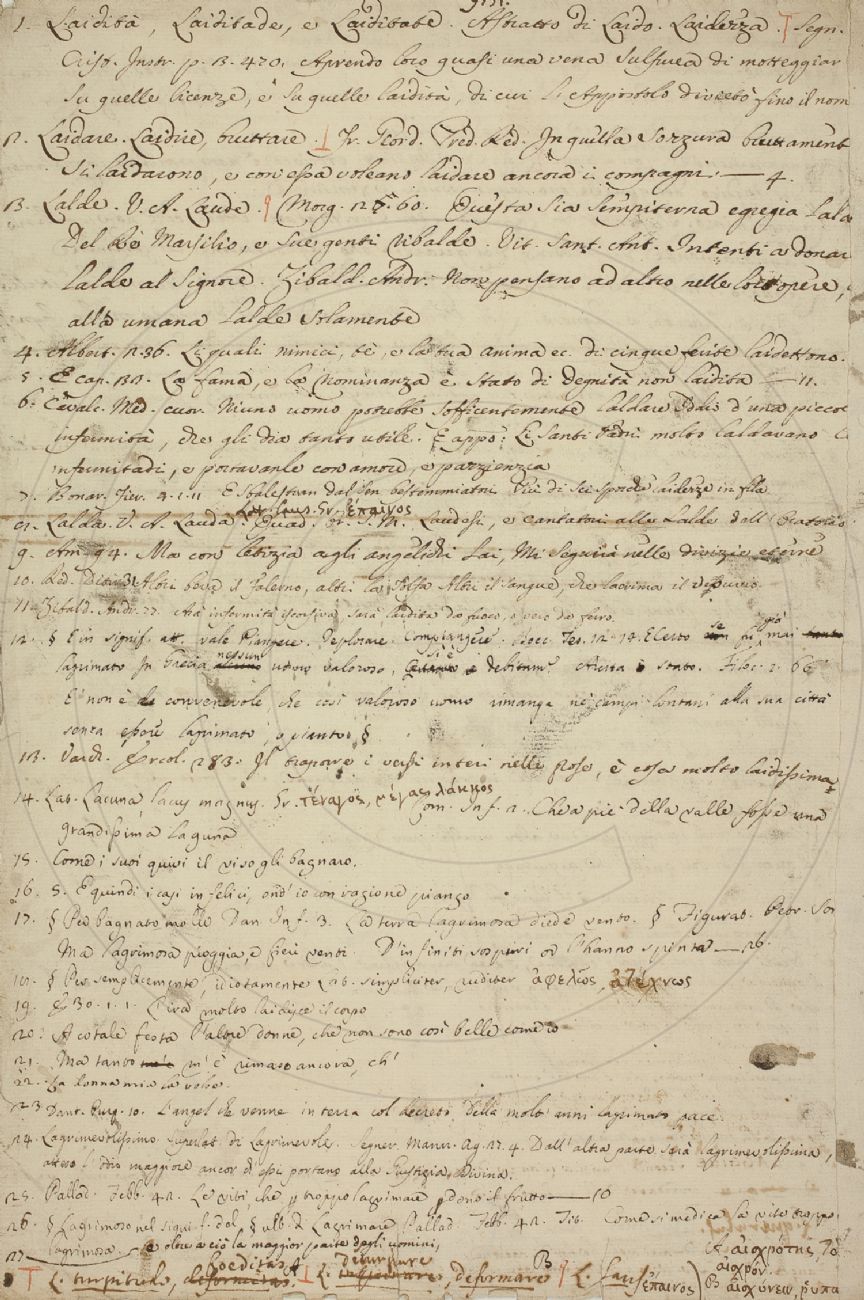 1. Laidità, Laiditade, e Laiditate. Astratto di Laido. Laidezza. T Segn.
Crist. Instr. p. 13. 470. Aprendo loro quasi una vena sulfurea di motteggiar
su quelle licenze, e su quelle laidità, di cui l'Appostolo divietò sino il nom
2. Laidare. Laidire, bruttare ⊥ Fr. Giord. Pred. Red. In quella sozzura bruttament
si laidarono, e con essa voleano laidare ancora i compagni. — 4.
3. Lalde. V. A. Laude ϙ Morg. 25. 60. Questa sia sempiterna egregia Lald
Del Re Marsilio, e sue genti ribalde. Vit. Sant. Ant. Intenti a donar
Lalde al Signore. Zibald. Andr. Non pensano ad altro nelle loro opere,
alla umana lalde solamente
4. Albert. 2. 36. Li quali nimici, te, e la tua anima ec. di cinque ferite laidettono.
5. E cap. 33. La fama, e la nominanza e stato di degnità non laidita — 11.
6. Cavalc. Med. cuor. Niuno uomo potrebbe sofficentemente laldare Iddio d'una piccol
infermità, che gli dia tanto utile. E appò: Li Santi Padri molto laldavano l
infermitadi, e portavanle con amore, e pazzienzia
7. Bonar. Fier. 4. 1. 11 E sbalestran dal ben bestemmiatri Vie di sei sporche laidezze in fila
Lat. laus. Gr. ἔπαινος
8. Lalda. V. A. Lauda. Quad. Or. S. M. Laudesi, e cantatori alle Lalde dell' Oratorio
9. Am. 94. Ma con letizia agli angelichi Lai, Mi seguiva nelle divizie eterne
10. Red. Ditir. 31 Altri beva il Falerno, altri la Tolfa Altri il sangue, che lacrima il Vesuvio.
11. Zibald. Andr. 27. Avà infermità iscorsiva, sarà laidita da fuoco, o vero da ferro.
12. § E in signif. att. vale Piangere. Deplorare Compiangere. Bocc. Tes. 12. 14. E certo se fu già mai
lagrimato In Grecia nessun uomo valoroso, si è debitam. Arcita stato. Filoc. 2. 66
E' non è convenevole, che così valoroso uomo rimanga ne' campi lontani alla sua città
senza essere lagrimato, o pianto §.
13. Varch. Ercol. 283. Il traporre i versi interi nelle Prose, è cosa molto laidissima
14. Lat. Lacuna, lacus magnus. Gr. τέναγος, μέγας λάκκος Com. Inf. 2. Che a piè della valle fosse una
grandissima laguna
15. Come i suoi quivi il viso gli bagnaro.
16. 5. E quindi i casi infelici, ond' io con ragione piango
17. § Per bagnato molle Dan. Inf. 3. La terra lagrimosa diede vento. § Figurat. Petr. Son
Ma lagrimosa pioggia, e fieri venti D'infiniti sospiri or l'hanno spinta — 26.
18. § Per semplicemente, idiotamente Lat. simpliciter, ruditer ἀφελῶς, ἀτέχνως
19. 30. 1. 1. L'ira molto laidisce il corpo
20. A cotale festa l'altre donne, che non sono così belle come io
21. Ma tanto m' è rimaso ancora, ch'
22. La donna mia la volse.
23 Dant. Purg. 10. L'angel che venne in terra col decreto Della molt' anni lagrimata pace
24. Lagrimevolissimo. Superlat. di Lagrimevole. Segner. Mann. Ag. 27. 4. Dall' altra parte sarà lagrimevolissima,
atteso l'odio maggiore ancor ch' essi portano alla Giustizia Divina.
25. Pallad. Febb. 42. Le viti, che p troppo lagrimare pdono il frutto — 10
26. § Lagrimoso nel signif. del § ult. di Lagrimare Pallad. Febb. 42. Tit. Come si medica la vite troppo
lagrimosa.
27. se oltre a ciò la maggior parte degli uomini,
T L. turpitudo, foeditas A ⊥ L. deturpare, deformare B ϙ L. laus ἔπαινος
A αἰσχρότης, τὸ αἰσχρόν
B αἰσχύνειν, ῥυπα